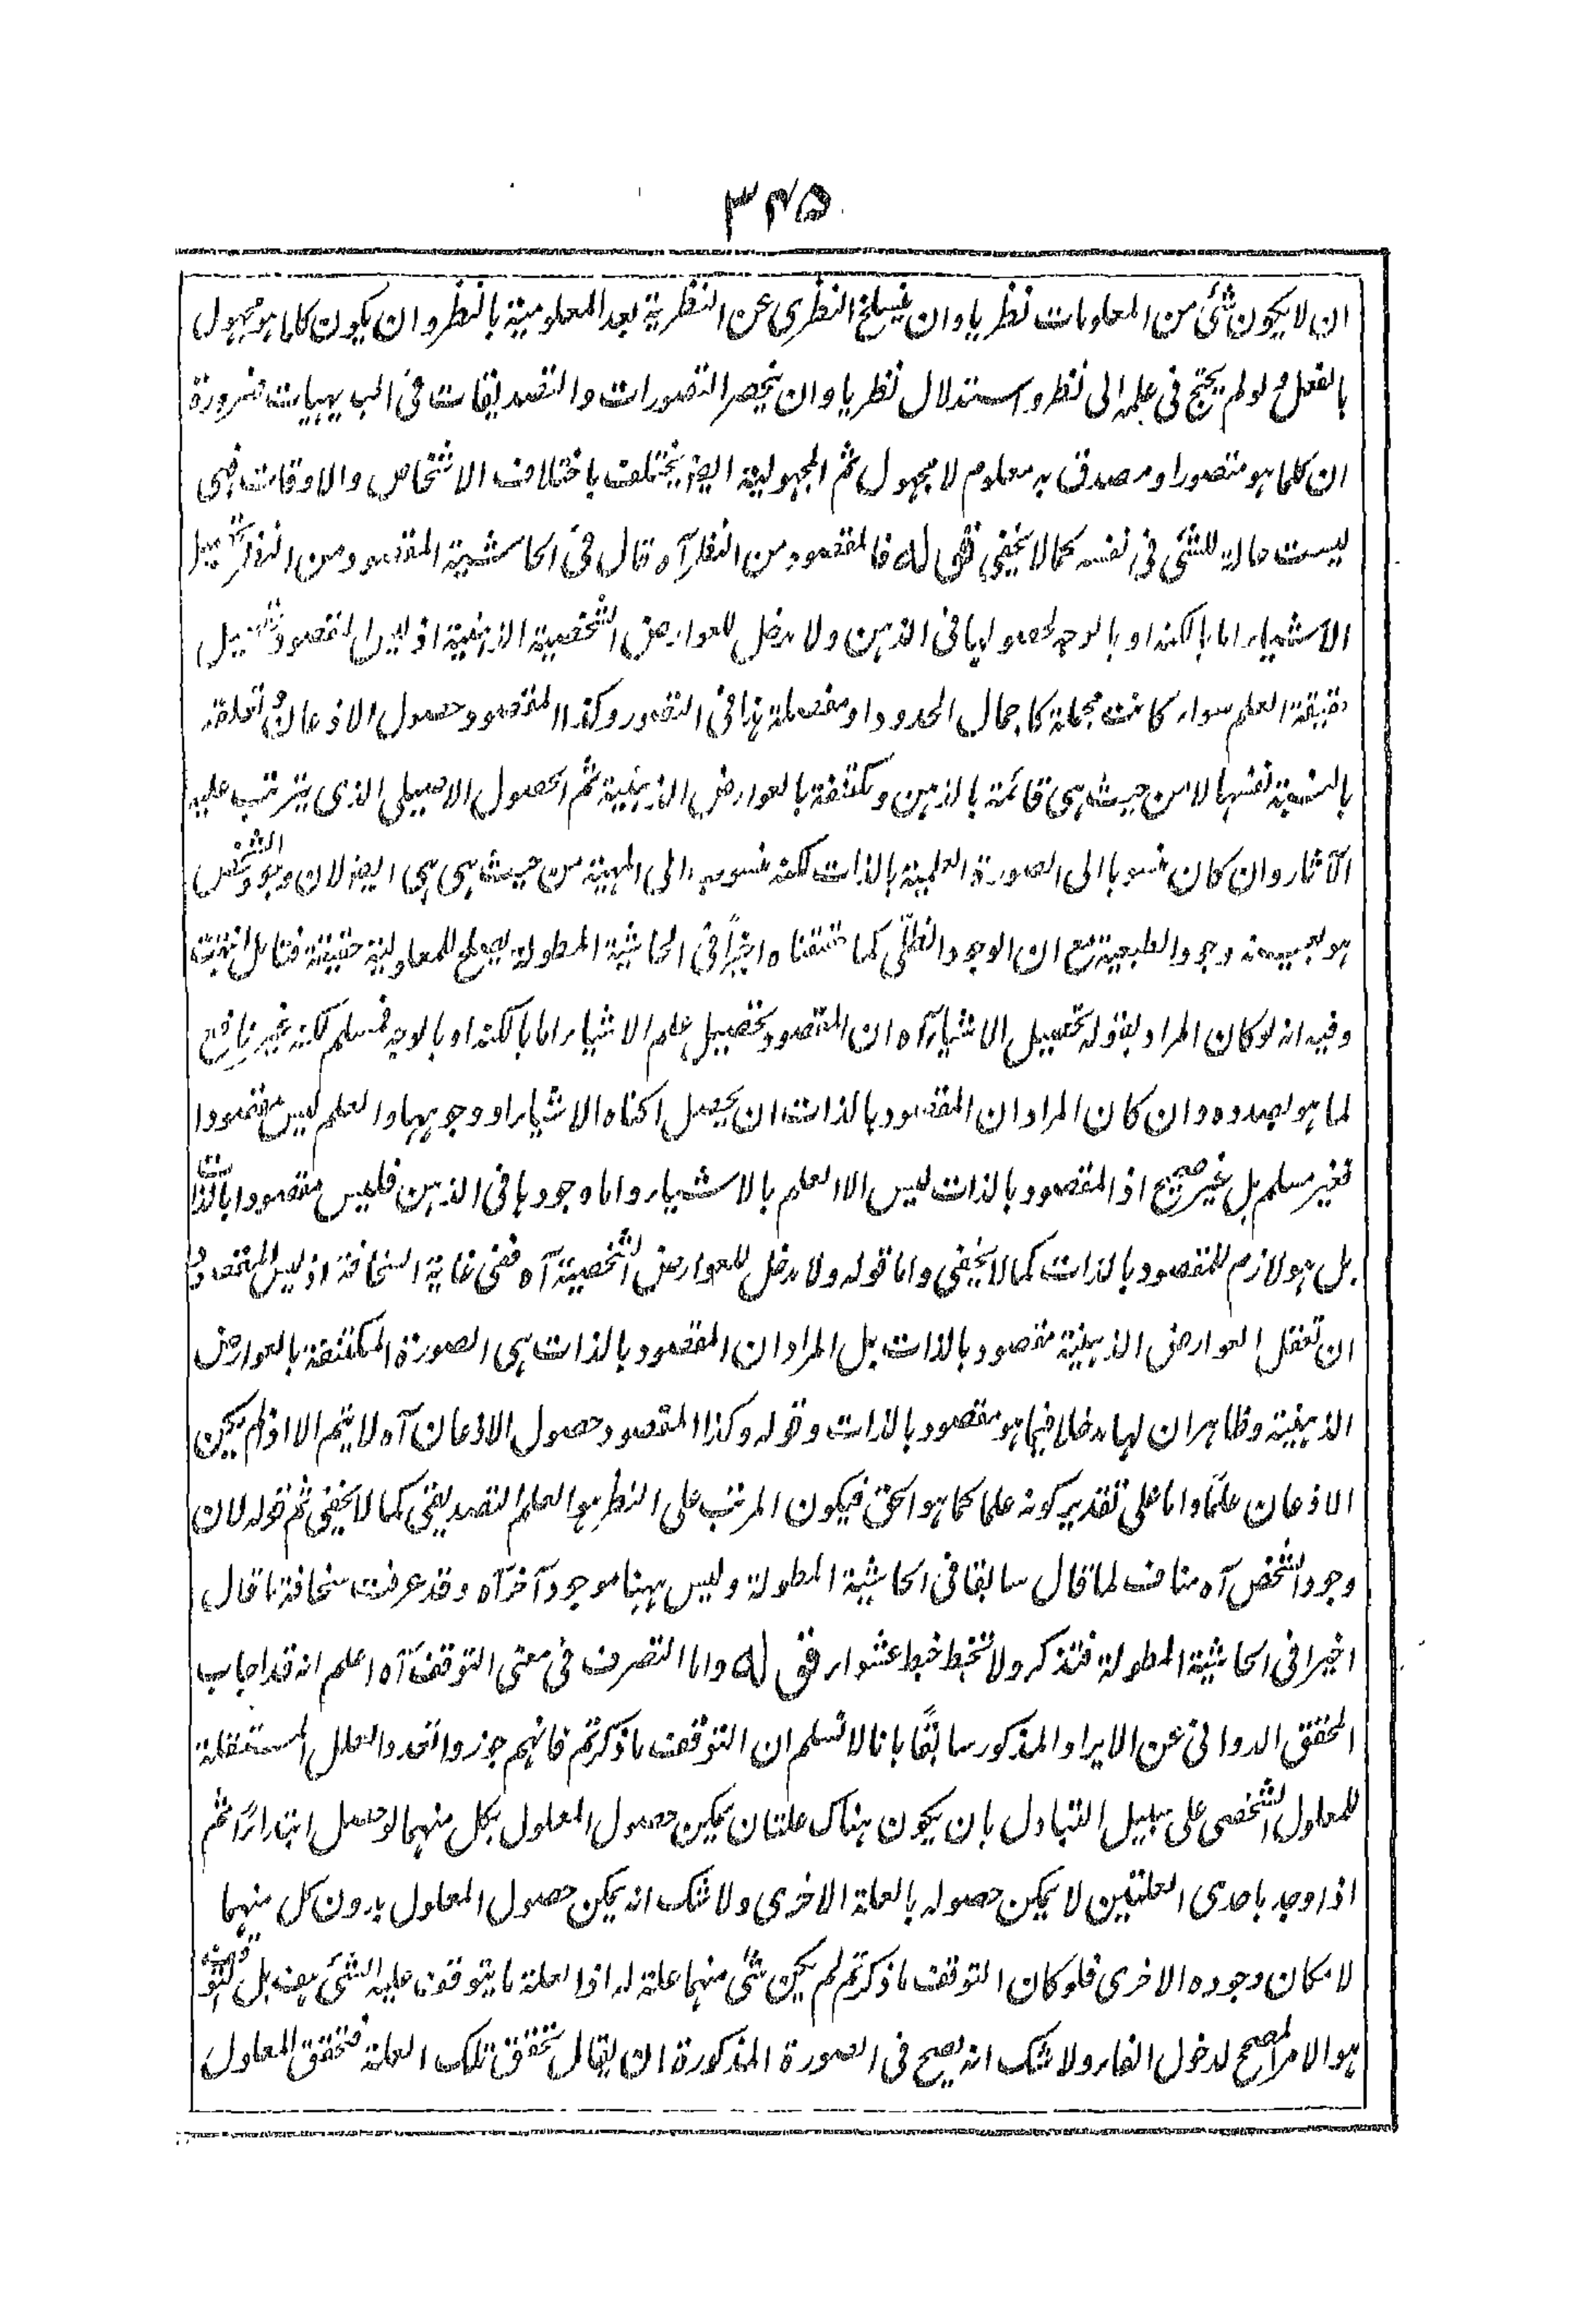 ۳۴۵
ان لا يكون شئ من المعلومات نظريا وان ينسلخ النظرى عن النظرية بعد المعلومية بالنظر وان يكون كلما هو مجهول
بالفعل ولو لم يحتج فى علمه الى نظر واستدلال نظريا وان ينحصر التصورات والتصديقات فى البديهيات ضرورة
ان كلما هو متصور او مصدق به معلوم لا مجهول ثم المجهولية ايضا يختلف باختلاف الاشخاص والاوقات فهى
ليست حالة للشئ فى نفسه كما لا يخفى قوله فالمقصود من النظر آه قال فى الحاشية المقصود من النظر تحصيل
الاشياء اما بالكنه او بالوجه لحصولها فى الذهن ولا دخل للعوارض الشخصية الذهنية اذ ليس المقصود تحصيل
حقيقة العلم سواء كانت مجملة كاجمال الحدود او مفصلة هذا فى التصور وكذا المقصود حصول الاذعان وتعلقه
بالنسبة نفسها لا من حيث هى قائمة بالذهن ومكتنفة بالعوارض الذهنية ثم الحصول الاصيلى الذى يترتب عليه
الآثار وان كان منسوبا الى الصورة العلمية بالذات لكنه منسوب الى المهية من حيث هى هى ايضا لان وجود الشخص
هو بعينه وجود الطبيعية مع ان الوجود الظلى كما حققناه اخيرًا فى الحاشية المطولة يصلح للمعلولية حقيقة فتأمل انتهت
وفيه انه لو كان المراد بقوله تحصيل الاشياء آه ان المقصود تحصيل علم الاشياء اما بالكنه او بالوجه فمسلم لكنه غير نافع
لما هو بصدده وان كان المراد ان المقصود بالذات ان يحصل اكناه الاشياء او وجوهها والعلم ليس مقصودا
فغير مسلم بل غير صحيح اذ المقصود بالذات ليس الا العلم بالاشياء واما وجودها فى الذهن فليس مقصودا بالذات
بل هو لازم للمقصود بالذات كما لا يخفى واما قوله ولا دخل للعوارض الشخصية آه ففى غاية السخافة اذ ليس المقصود
ان تعقل العوارض الذهنية مقصود بالذات بل المراد ان المقصود بالذات هى الصورة المكتنفة بالعوارض
الذهنية وظاهر ان لها دخلا فيما هو مقصود بالذات وقوله وكذا المقصود حصول الاذعان آه لا يتم الا اذا لم يكن
الاذعان علمًا واما على تقدير كونه علما كما هو الحق فيكون المرتب على النظر هو العلم التصديقى كما لا يخفى ثم قوله لان
وجود الشخص آه مناف لما قال سابقا فى الحاشية المطولة وليس ههنا موجود آخر آه وقد عرفت سخافة ما قال
اخيرا فى الحاشية المطولة فتذكر ولا تخبط خبط عشواء قوله واما التصرف فى معنى التوقف آه اعلم انه قد اجاب
المحقق الدوانى عن الايراد المذكور سابقًا بانا لا نسلم ان التوقف ما ذكرتم فانهم جوزوا تعدد العلل المستقلة
للمعلول الشخصى على سبيل التبادل بان يكون هناك علتان يمكن حصول المعلول بكل منهما لو حصل ابتداءً ثم
اذا وجد باحدى العلتين لا يمكن حصوله بالعلة الاخرى ولا شك انه يمكن حصول المعلول بدون كل منهما
لامكان وجوده الاخرى فلو كان التوقف ما ذكرتم لم يكن شئ منهما علة له اذ العلة ما يتوقف عليه الشئ هف بل التوقف
هو الامر المصحح لدخول الفاء ولا شك انه يصح فى الصورة المذكورة ان يقال تحقق تلك العلة فتحقق المعلول